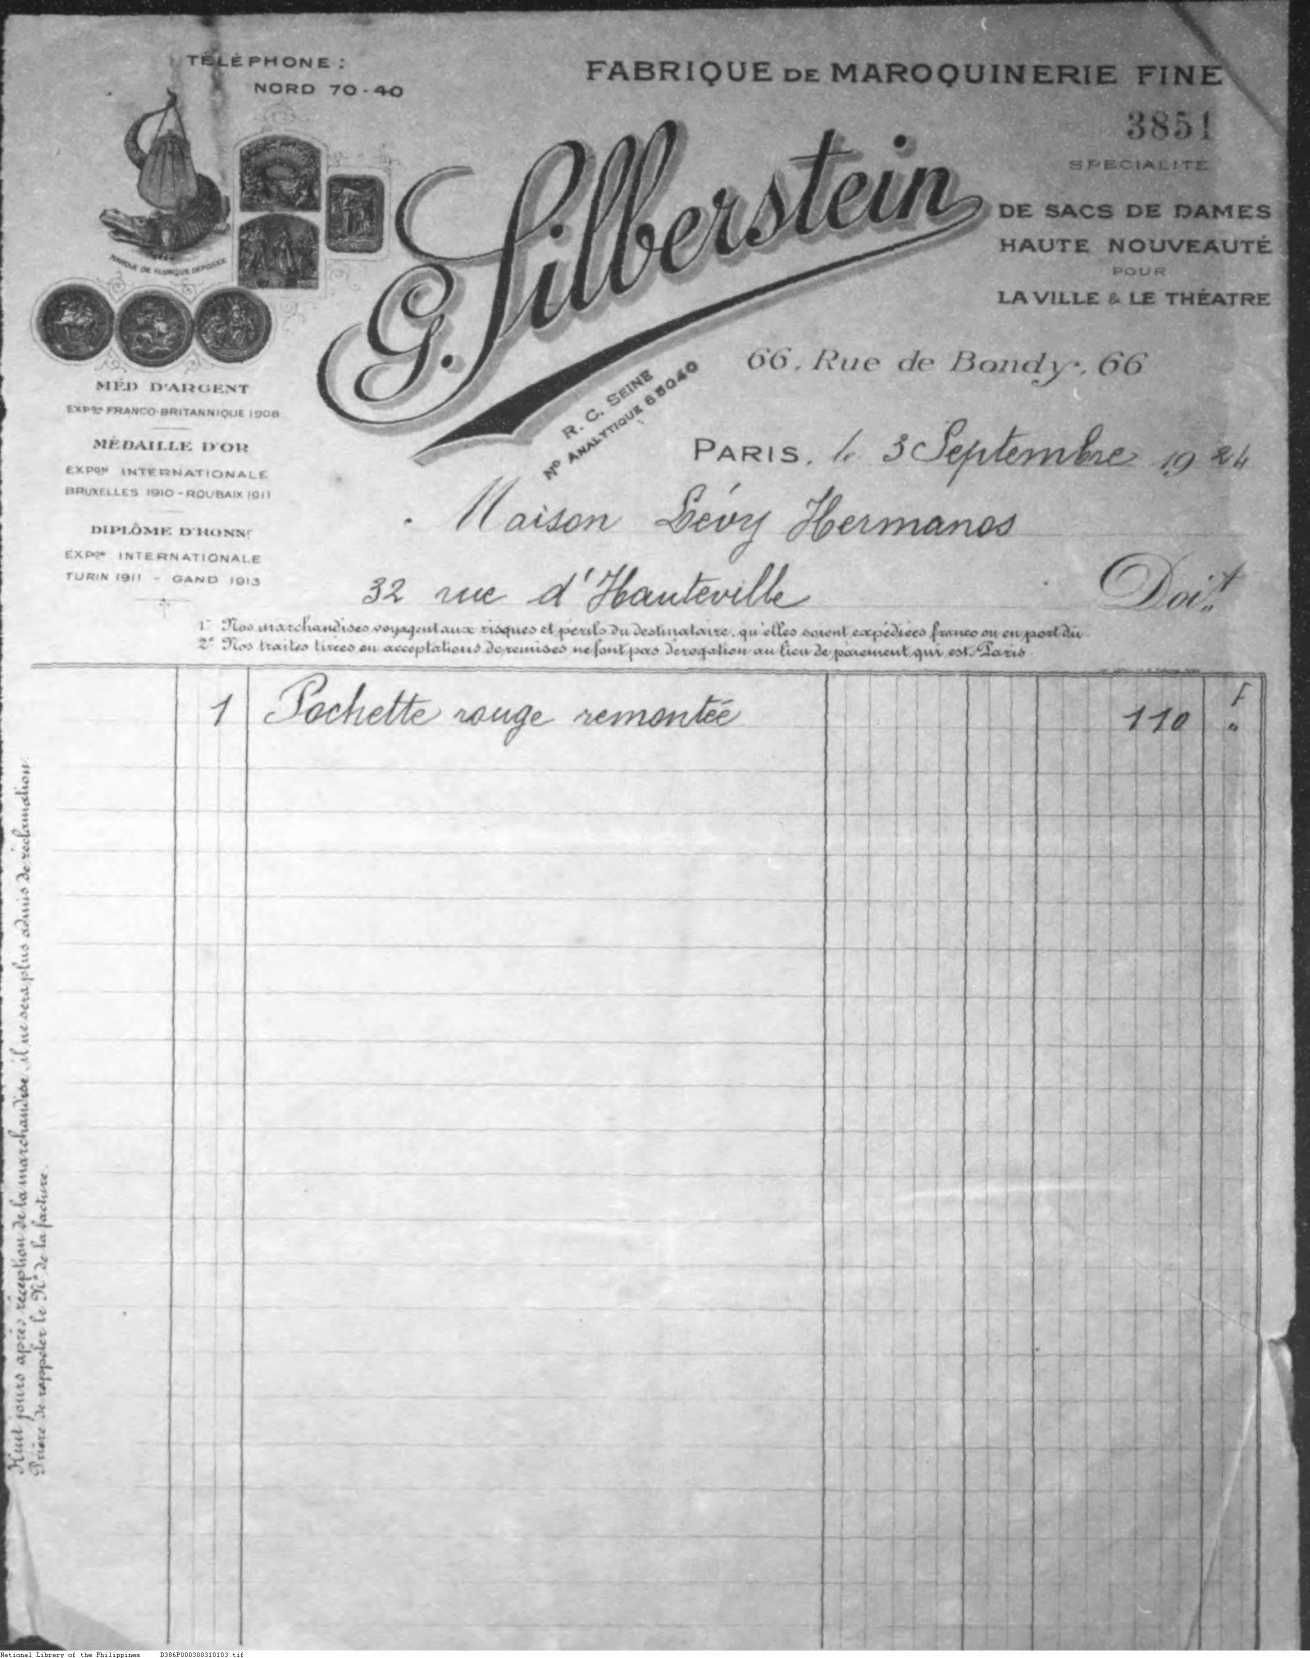 TÉLÉPHONE :
NORD 70-40
FABRIQUE DE MAROQUINERIE FINE
3851
SPÉCIALITÉ
DE SACS DE DAMES
HAUTE NOUVEAUTÉ
POUR
LA VILLE & LE THÉATRE
G. Silberstein
MARQUE DE FABRIQUE DÉPOSÉE
66, Rue de Bondy, 66
R. C. SEINE
Nº ANALYTIQUE 65040
MÉD D'ARGENT
EXPon FRANCO-BRITANNIQUE 1908
MÉDAILLE D'OR
EXPon INTERNATIONALE
BRUXELLES 1910 - ROUBAIX 1911
DIPLÔME D'HONNr
EXPon INTERNATIONALE
TURIN 1911 - GAND 1913
PARIS, le 3 Septembre 1924
Maison Lévy Hermanos
32 rue d'Hauteville
Doit
1º Nos marchandises voyagent aux risques et périls du destinataire, qu'elles soient expédiées franco ou en port dû
2º Nos traites tirées ou acceptations de remises ne font pas dérogation au lieu de paiement qui est Paris
1 Pochette rouge remontée 110 F "
Huit jours après réception de la marchandise, il ne sera plus admis de réclamation.
Prière de rappeler le Nº de la facture.
National Library of the Philippines D386P000300310103.tif